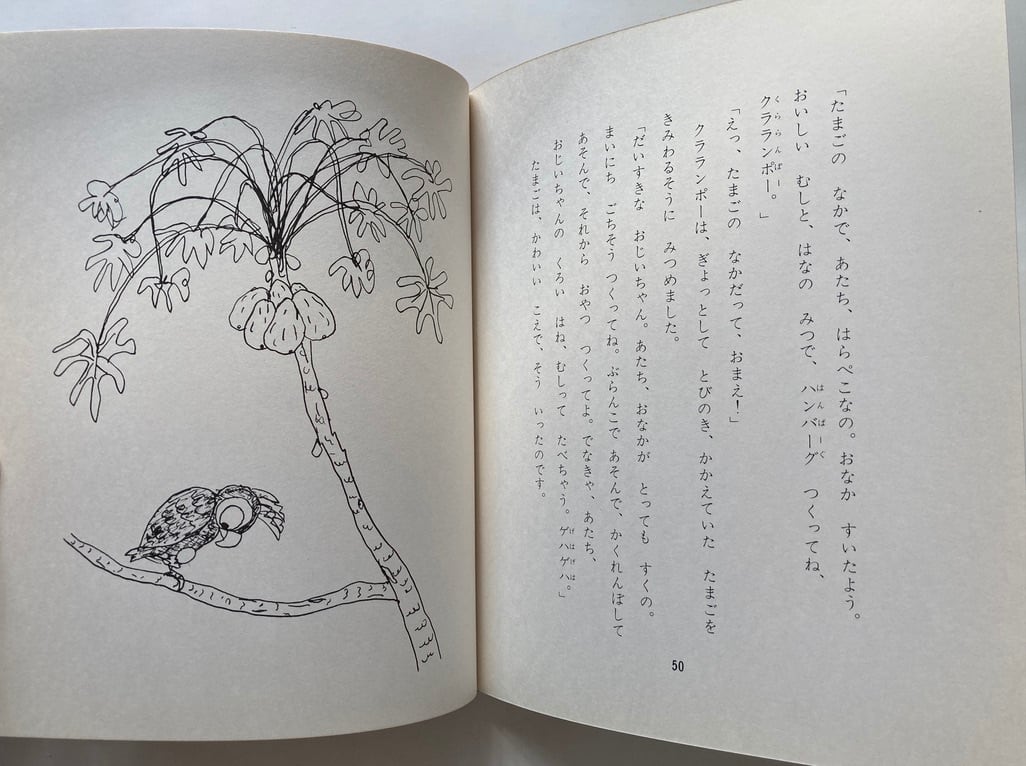 「たまごの　なかで、あたち、はらぺこなの。おなか　すいたよう。
おいしい　むしと、はなの　みつで、ハンバーグ　つくってね、
はんばーぐ
クラランポー。」
くららんぽー
「えっ、たまごの　なかだって、おまえ！」
クラランポーは、ぎょっとして　とびのき、かかえていた　たまごを
きみわるそうに　みつめました。
「だいすきな　おじいちゃん。あたち、おなかが　とっても　すくの。
まいにち　ごちそう　つくってね。ぶらんこで　あそんで、かくれんぼして
あそんで、それから　おやつ　つくってよ。でなきゃ、あたち、
おじいちゃんの　くろい　はね、むしって　たべちゃう。ゲハゲハ。」
げはげは
たまごは、かわいい　こえで、そう　いったのです。
50